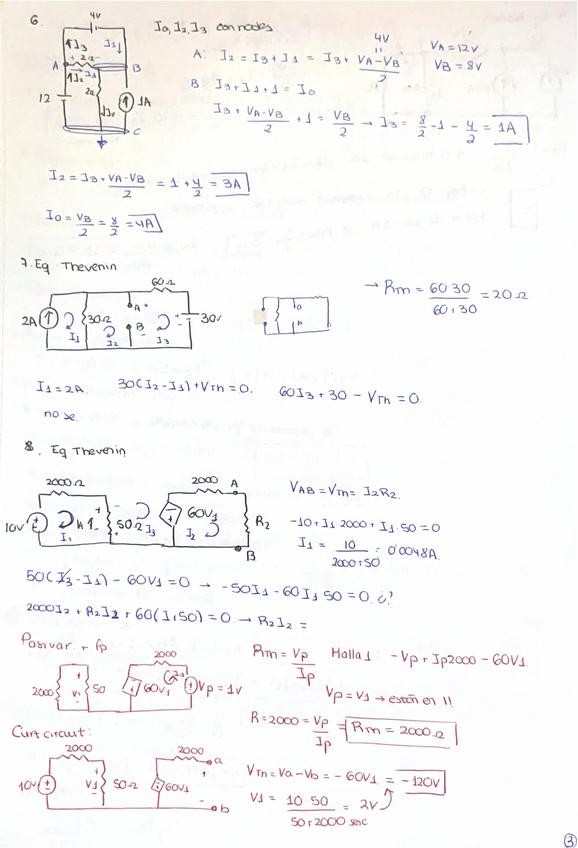 6.
4V
I0, I2, I3 con nodes
↑I3
I1↓
A
2Ω
B
↑I2
I1
2Ω
12
1A
↓I0
C
4V
A: I2 = I3 + I1 = I3 + (VA-VB)/2
VA = 12V
VB = 8V
B: I3 + I1 + 1 = I0
I3 + (VA-VB)/2 + 1 = VB/2 → I3 = 8/2 - 1 - 4/2 = 1A
I2 = I3 + (VA-VB)/2 = 1 + 4/2 = 3A
I0 = VB/2 = 8/2 = 4A
7. Eq Thevenin
60Ω
2A
30Ω
A +
B -
30V
I1
I2
I3
→ Rm = 60·30/(60+30) = 20Ω
I1 = 2A.
30(I2 - I1) + VTH = 0.
60I3 + 30 - VTH = 0.
no se.
8. Eq Thevenin
2000Ω
2000
A
10V
50Ω
60V1
R2
I1
I3
I2
B
VAB = VTH = I2R2.
-10 + I1 2000 + I1·50 = 0
I1 = 10/(2000+50) = 0'0048A.
50(I3 - I1) - 60V1 = 0 → -50I1 - 60 I1 50 = 0. ¿?
2000I2 + R2I2 + 60(I1 50) = 0 → R2I2 =
2000
2000
V1
50
60V1
Vp = 1V
Rm = Vp/Ip
Malla 1: -Vp + Ip2000 - 60V1
Vp = V1 → están en ||
R = 2000 = Vp/Ip = Rm = 2000Ω
Curt circuit:
2000
2000
a
10V
V1
50Ω
60V1
b
VTH = Va - Vb = - 60V1 = -120V
V1 = 10·50/(50+2000) = 2V
3